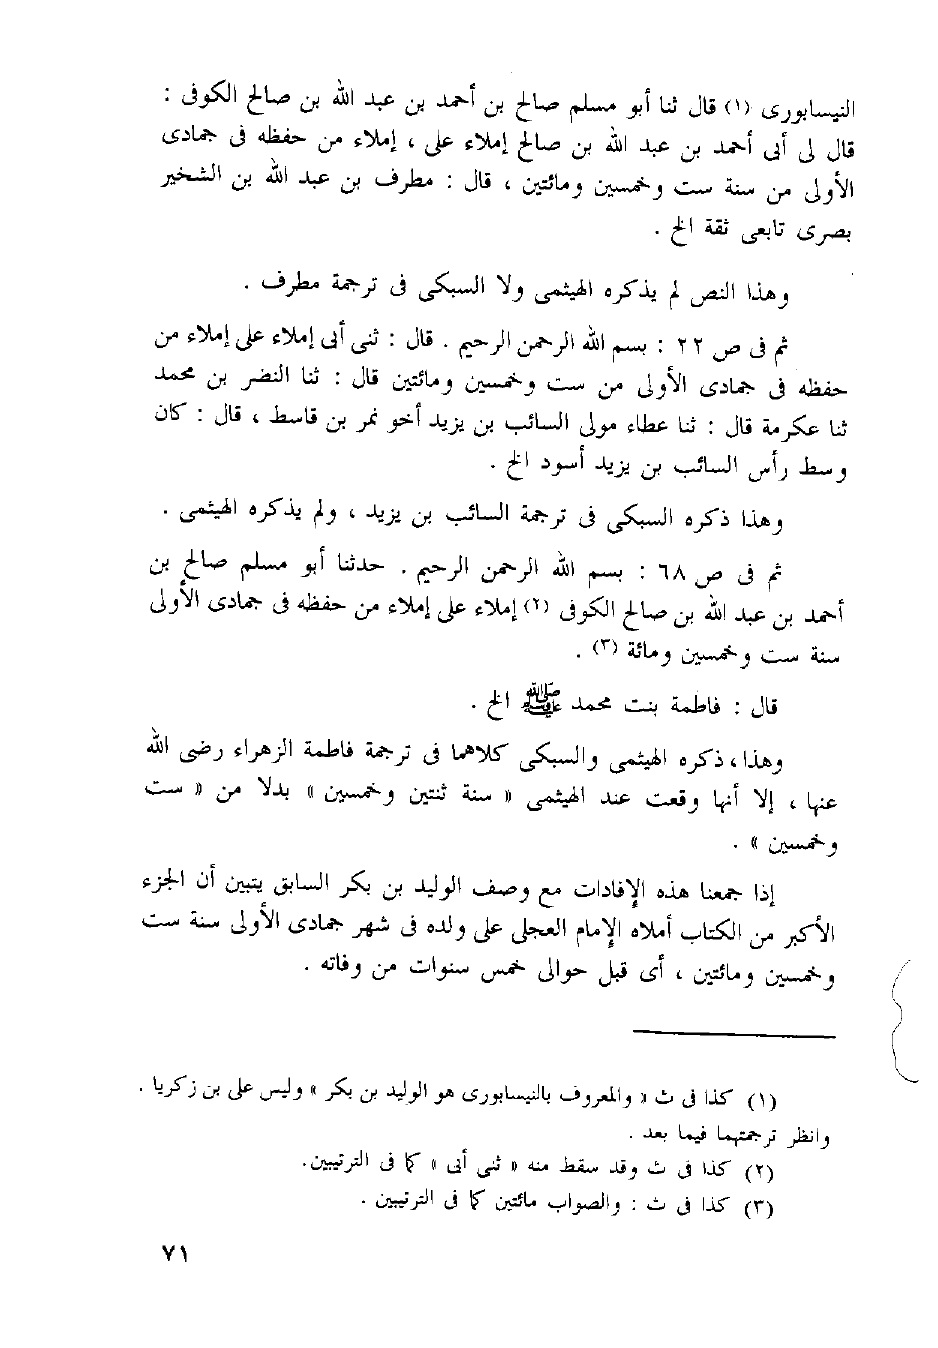 النيسابورى (١) قال ثنا أبو مسلم صالح بن أحمد بن عبد الله بن صالح الكوفى :
قال لى أبى أحمد بن عبد الله بن صالح إملاء على ، إملاء من حفظه فى جمادى
الأولى من سنة ست وخمسين ومائتين ، قال : مطرف بن عبد الله بن الشخير
بصرى تابعى ثقة الخ .
وهذا النص لم يذكره الهيثمى ولا السبكى فى ترجمة مطرف .
ثم فى ص ٢٢ : بسم الله الرحمن الرحيم . قال : ثنى أبى إملاء على إملاء من
حفظه فى جمادى الأولى من ست وخمسين ومائتين قال : ثنا النضر بن محمد
ثنا عكرمة قال : ثنا عطاء مولى السائب بن يزيد أخو نمر بن قاسط ، قال : كان
وسط رأس السائب بن يزيد أسود الخ .
وهذا ذكره السبكى فى ترجمة السائب بن يزيد ، ولم يذكره الهيثمى .
ثم فى ص ٦٨ : بسم الله الرحمن الرحيم . حدثنا أبو مسلم صالح بن
أحمد بن عبد الله بن صالح الكوفى (٢) إملاء على إملاء من حفظه فى جمادى الأولى
سنة ست وخمسين ومائة (٣) .
قال : فاطمة بنت محمد ﷺ الخ .
وهذا ، ذكره الهيثمى والسبكى كلاهما فى ترجمة فاطمة الزهراء رضى الله
عنها ، إلا أنها وقعت عند الهيثمى « سنة ثنتين وخمسين » بدلا من « ست
وخمسين » .
إذا جمعنا هذه الإفادات مع وصف الوليد بن بكر السابق يتبين أن الجزء
الأكبر من الكتاب أملاه الإمام العجلى على ولده فى شهر جمادى الأولى سنة ست
وخمسين ومائتين ، أى قبل حوالى خمس سنوات من وفاته .
(١) كذا فى ث « والمعروف بالنيسابورى هو الوليد بن بكر » وليس على بن زكريا .
وانظر ترجمتهما فيما بعد .
(٢) كذا فى ث وقد سقط منه « ثنى أبى » كما فى الترتيبين .
(٣) كذا فى ث : والصواب مائتين كما فى الترتيبين .
٧١